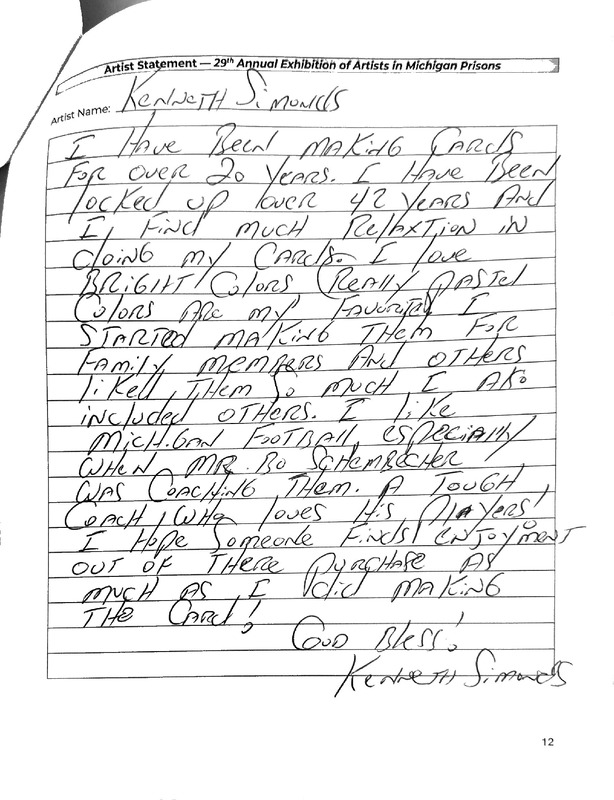 Artist Statement — 29th Annual Exhibition of Artists in Michigan Prisons
Artist Name: Kenneth Simonds
I Have Been making Cards
For over 20 years. I Have Been
locked up over 42 years And
I, Find much Relaxtion in
doing my Cards. I love
Bright Colors (Really Pastel
Colors Are my Favorite) I
Started making Them For
Family members And others
liked Them so much I Also
included others. I like
Michigan Football, especially
when Mr. Bo Schembecher
was Coaching Them. A Tough
Coach, who loves His Players!
I Hope Someone Finds enjoyment
out of There purchase as
much as I did making
The Card!
God Bless!
Kenneth Simonds
12